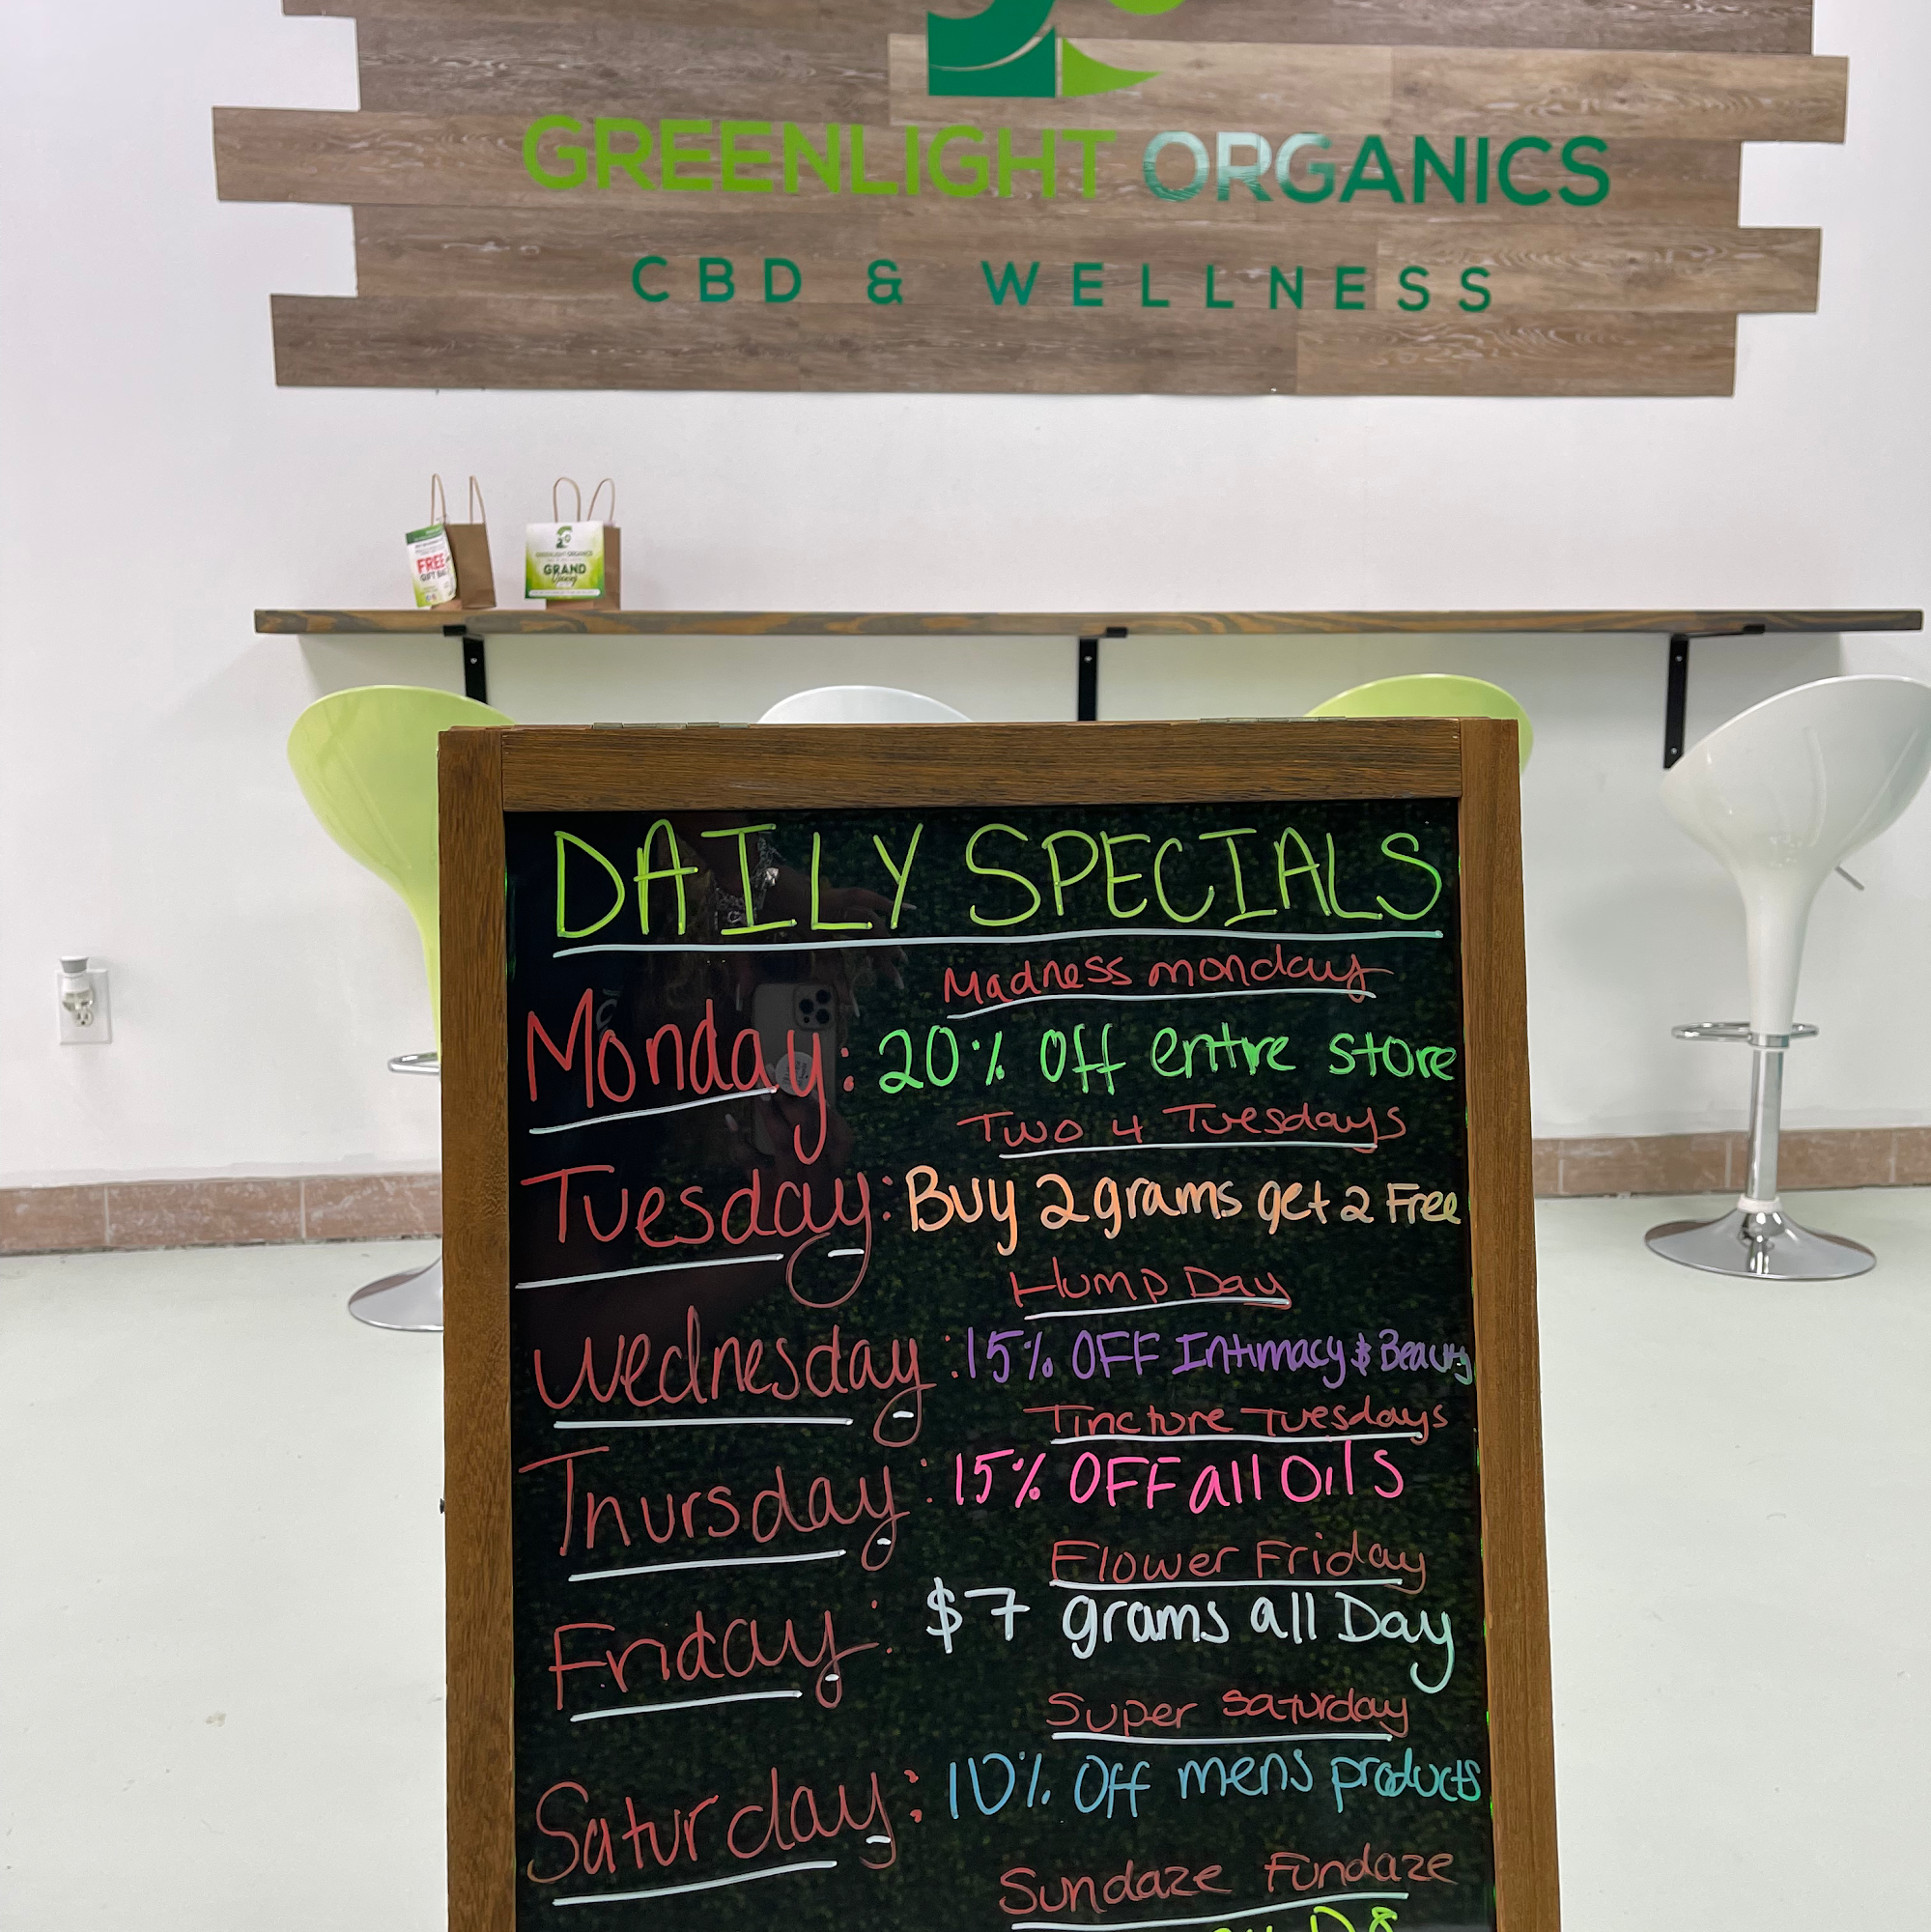 GREENLIGHT ORGANICS
CBD & WELLNESS
FREE
GREENLIGHT ORGANICS
GRAND
DAILY SPECIALS
Madness monday
Monday: 20% Off entire store
Two 4 Tuesdays
Tuesday: Buy 2 grams get 2 Free
Hump Day
Wednesday: 15% OFF Intimacy & Beauty
Tincture Tuesdays
Thursday: 15% OFF all Oils
Flower Friday
Friday: $7 grams all Day
Super Saturday
Saturday: 10% Off mens products
Sundaze Fundaze
D8